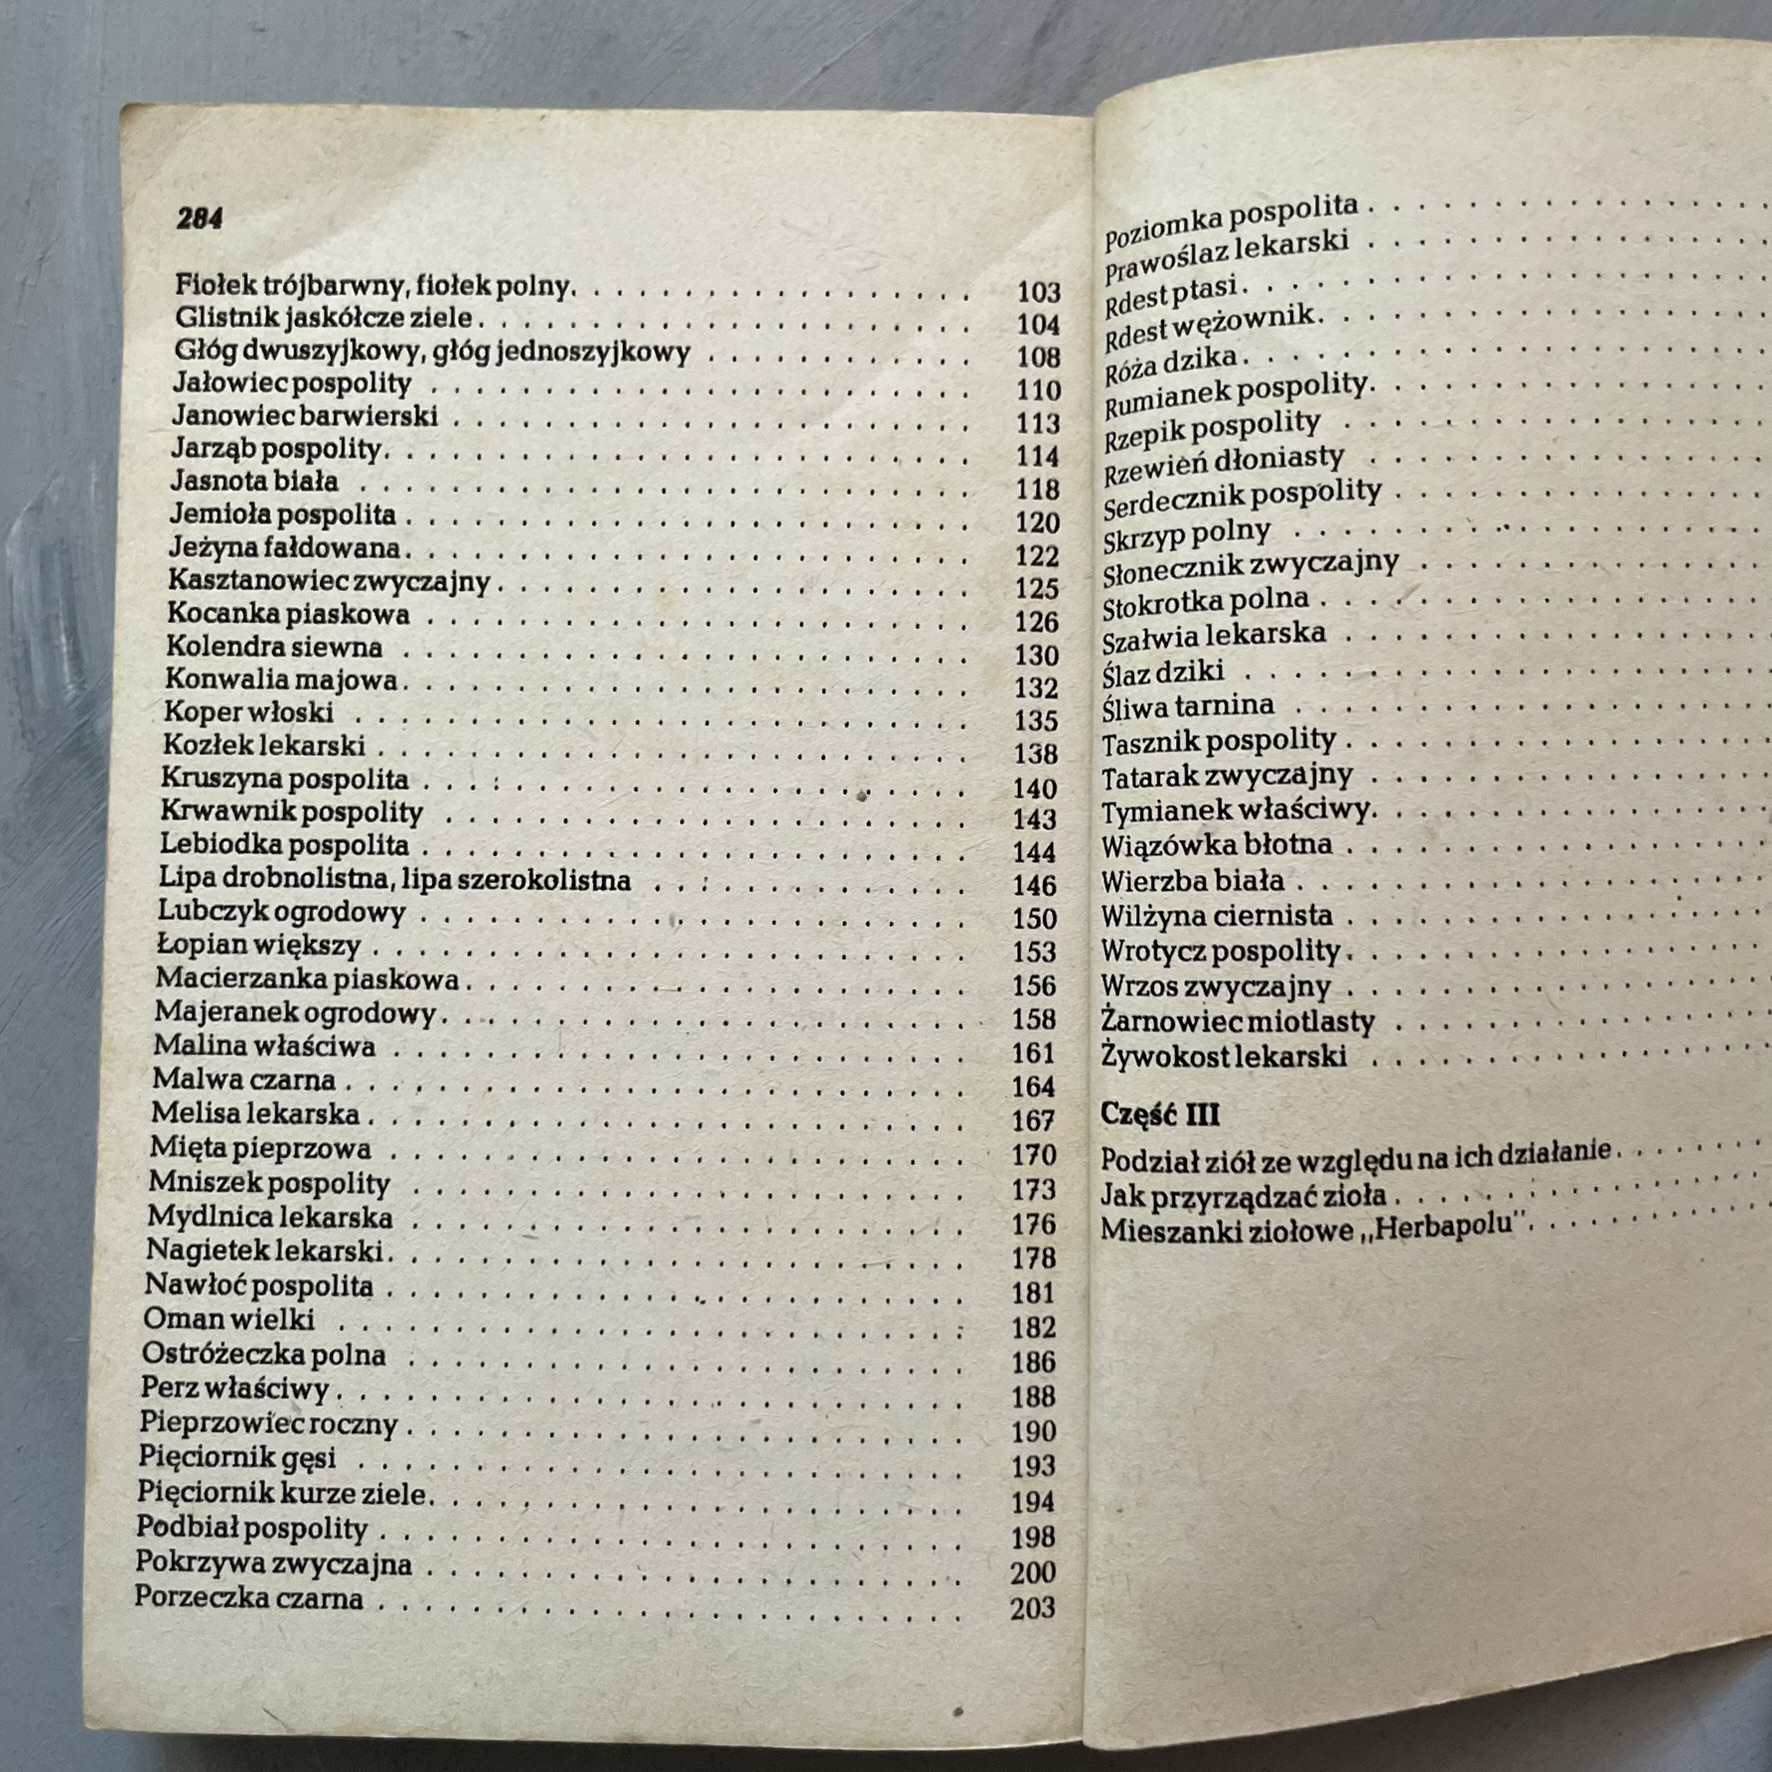 284
Fiołek trójbarwny, fiołek polny. . . . . . . . . . . . . . . . . . 103
Glistnik jaskółcze ziele. . . . . . . . . . . . . . . . . . . . . . 104
Głóg dwuszyjkowy, głóg jednoszyjkowy . . . . . . . . . . . . 108
Jałowiec pospolity . . . . . . . . . . . . . . . . . . . . . . . 110
Janowiec barwierski . . . . . . . . . . . . . . . . . . . . . . 113
Jarząb pospolity. . . . . . . . . . . . . . . . . . . . . . . . . 114
Jasnota biała . . . . . . . . . . . . . . . . . . . . . . . . . . 118
Jemioła pospolita . . . . . . . . . . . . . . . . . . . . . . . . 120
Jeżyna fałdowana. . . . . . . . . . . . . . . . . . . . . . . . 122
Kasztanowiec zwyczajny . . . . . . . . . . . . . . . . . . . . 125
Kocanka piaskowa . . . . . . . . . . . . . . . . . . . . . . . 126
Kolendra siewna . . . . . . . . . . . . . . . . . . . . . . . . 130
Konwalia majowa. . . . . . . . . . . . . . . . . . . . . . . . 132
Koper włoski . . . . . . . . . . . . . . . . . . . . . . . . . . 135
Kozłek lekarski . . . . . . . . . . . . . . . . . . . . . . . . . 138
Kruszyna pospolita . . . . . . . . . . . . . . . . . . . . . . . 140
Krwawnik pospolity . . . . . . . . . . . . . . . . . . . . . . 143
Lebiodka pospolita . . . . . . . . . . . . . . . . . . . . . . . 144
Lipa drobnolistna, lipa szerokolistna . . . . . . . . . . . . . . 146
Lubczyk ogrodowy . . . . . . . . . . . . . . . . . . . . . . . 150
Łopian większy . . . . . . . . . . . . . . . . . . . . . . . . . 153
Macierzanka piaskowa. . . . . . . . . . . . . . . . . . . . . . 156
Majeranek ogrodowy. . . . . . . . . . . . . . . . . . . . . . . 158
Malina właściwa . . . . . . . . . . . . . . . . . . . . . . . . 161
Malwa czarna . . . . . . . . . . . . . . . . . . . . . . . . . . 164
Melisa lekarska . . . . . . . . . . . . . . . . . . . . . . . . . 167
Mięta pieprzowa . . . . . . . . . . . . . . . . . . . . . . . . 170
Mniszek pospolity . . . . . . . . . . . . . . . . . . . . . . . 173
Mydlnica lekarska . . . . . . . . . . . . . . . . . . . . . . . 176
Nagietek lekarski. . . . . . . . . . . . . . . . . . . . . . . . 178
Nawłoć pospolita . . . . . . . . . . . . . . . . . . . . . . . . 181
Oman wielki . . . . . . . . . . . . . . . . . . . . . . . . . . 182
Ostróżeczka polna . . . . . . . . . . . . . . . . . . . . . . . 186
Perz właściwy . . . . . . . . . . . . . . . . . . . . . . . . . . 188
Pieprzowiec roczny . . . . . . . . . . . . . . . . . . . . . . . 190
Pięciornik gęsi . . . . . . . . . . . . . . . . . . . . . . . . . 193
Pięciornik kurze ziele. . . . . . . . . . . . . . . . . . . . . . 194
Podbiał pospolity . . . . . . . . . . . . . . . . . . . . . . . . 198
Pokrzywa zwyczajna . . . . . . . . . . . . . . . . . . . . . . 200
Porzeczka czarna . . . . . . . . . . . . . . . . . . . . . . . . 203
Poziomka pospolita . . . . . . . . . . . . . . . .
Prawoślaz lekarski . . . . . . . . . . . . . . . .
Rdest ptasi . . . . . . . . . . . . . . . . . . . .
Rdest wężownik. . . . . . . . . . . . . . . . . .
Róża dzika . . . . . . . . . . . . . . . . . . . .
Rumianek pospolity. . . . . . . . . . . . . . . .
Rzepik pospolity . . . . . . . . . . . . . . . . .
Rzewień dłoniasty . . . . . . . . . . . . . . . .
Serdecznik pospolity . . . . . . . . . . . . . . .
Skrzyp polny . . . . . . . . . . . . . . . . . . .
Słonecznik zwyczajny . . . . . . . . . . . . . .
Stokrotka polna . . . . . . . . . . . . . . . . . .
Szałwia lekarska . . . . . . . . . . . . . . . . .
Ślaz dziki . . . . . . . . . . . . . . . . . . . . .
Śliwa tarnina . . . . . . . . . . . . . . . . . . .
Tasznik pospolity . . . . . . . . . . . . . . . . .
Tatarak zwyczajny . . . . . . . . . . . . . . . .
Tymianek właściwy. . . . . . . . . . . . . . . .
Wiązówka błotna . . . . . . . . . . . . . . . . .
Wierzba biała . . . . . . . . . . . . . . . . . . .
Wilżyna ciernista . . . . . . . . . . . . . . . . .
Wrotycz pospolity . . . . . . . . . . . . . . . . .
Wrzos zwyczajny . . . . . . . . . . . . . . . . .
Żarnowiec miotlasty . . . . . . . . . . . . . . .
Żywokost lekarski . . . . . . . . . . . . . . . .
Część III
Podział ziół ze względu na ich działanie. . . . . . .
Jak przyrządzać zioła . . . . . . . . . . . . . . .
Mieszanki ziołowe „Herbapolu”. . . . . . . . . . .